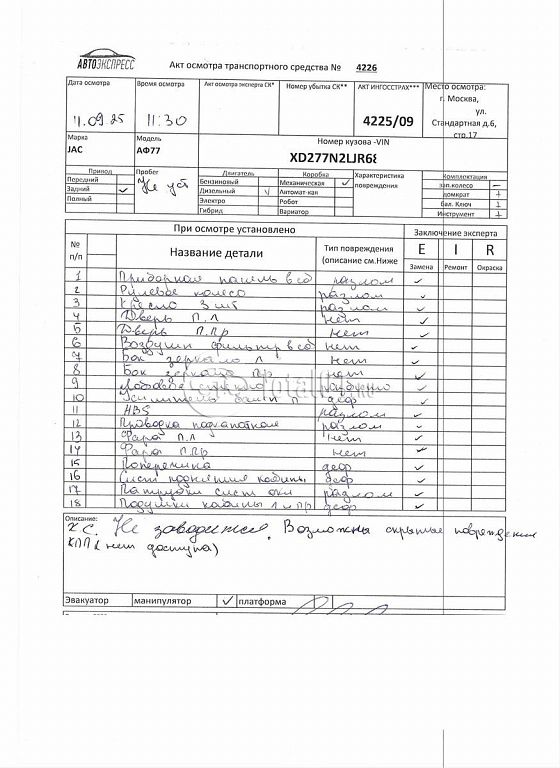 АВТОЭКСПРЕСС
Акт осмотра транспортного средства № 4226
Дата осмотра Время осмотра Акт осмотра эксперта СК* Номер убытка СК** АКТ ИНГОССТРАХ*** Место осмотра:
г. Москва,
ул.
Стандартная д.6,
стр.17
11.09.25 11:30 4225/09
Марка Модель Номер кузова -VIN
JAC АФ77 XD277N2LJR68
Привод Пробег Двигатель Коробка Характеристика повреждения Комплектация
Передний Не уст Бензиновый Механическая ✓ зап.колесо –
Задний ✓ Дизельный ✓ Автомат-кая домкрат +
Полный Электро Робот бал. Ключ +
Гибрид Вариатор Инструмент +
При осмотре установлено Заключение эксперта
№ п/п Название детали Тип повреждения (описание см.Ниже E I R
Замена Ремонт Окраска
1 Приборная панель в сб разлом ✓
2 Рулевое колесо разлом ✓
3 Кресло 3 шт разлом ✓
4 Дверь П.Л нет ✓
5 Дверь П.Пр нет ✓
6 Воздушн фильтр в сб нет ✓
7 Бок зеркало Л нет ✓
8 Бок зеркало Пр нет ✓
9 Лобовое стекло разбито ✓
10 Усилитель П деф ✓
11 ABS разлом ✓
12 Проводка подкапотная разлом ✓
13 Фара П.Л нет ✓
14 Фара П.Пр нет ✓
15 Поперечина деф ✓
16 Сист поднятия кабины деф ✓
17 Патрубки сист охл разлом ✓
18 Подушки кабины л и пр деф ✓
Описание:
Не заводится. Возможны скрытые повреждения
КПП (нет доступа)
Эвакуатор манипулятор ✓ платформа